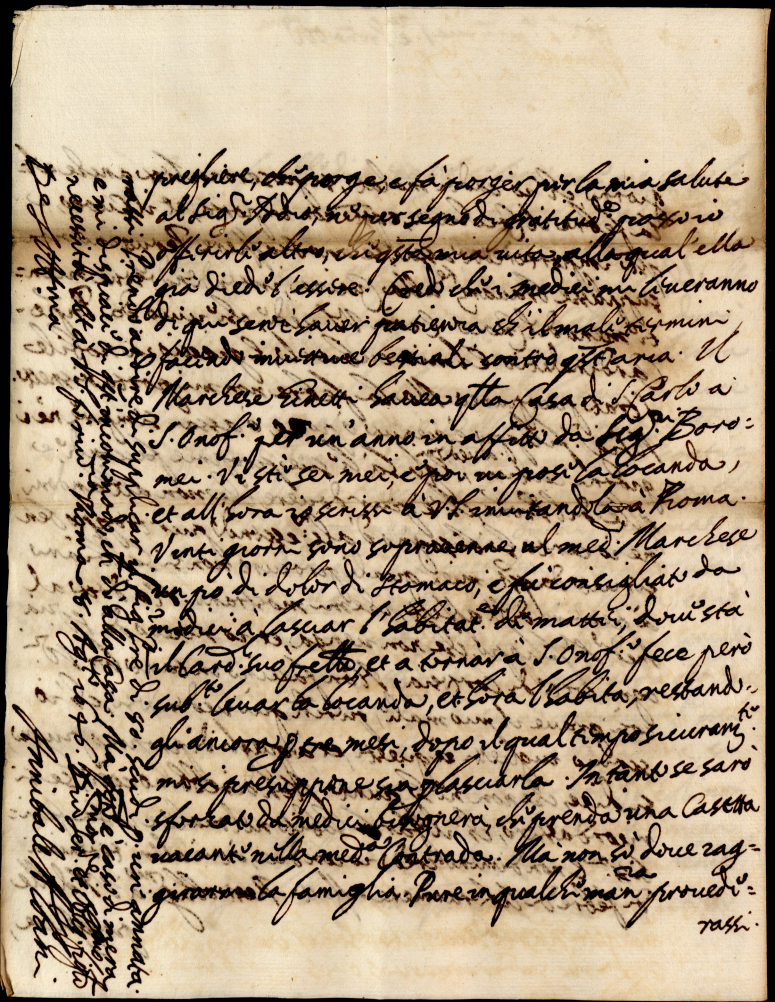 preghiere, che porge, e fà porger per la mia salute
al Sig.r Iddio, nè per segno di gratitud.e posso io
offerirle altro, che q.sta mia vita, alla qual' ella
già diede l'essere. Credo che i medici mi leveranno
di qui senz' haver patienza ch' il male termini,
facendo invettive bestiali contro q.st' aria. Il
Marchese Ginetti havea q.lla Casa di S. Carlo a
S. Onof.o per un' anno in affitto da Sig.ri Boro=
mei. Vi stè sei mesi, e poi vi pose la locanda,
et all' hora io scrissi à V.S. invitandola à Roma.
Vinti giorni sono sopravenne al med.o Marchese
un pò di dolor di stomaco, e fù consigliato da
medici à lasciar l'habitat.e de mattei, dove stà
il Card. suo f.ello, et a tornar à S. Onof.o fece però
sub.to levar la locanda, et hora l'habita, restando=
gli ancora p tre mesi, dopo il qual tempo sicuram.te
mi si presuppone sia p lasciarla. Intanto se sarò
sforzato da medici bisognerà, che prenda una Casetta
vacante nella med.a Contrada. Ma non sò dove rag=
girarmi la famiglia. Pure in qualche man.ra provede=
rassi.
e mi dispiace di q.st' incommodo, che dò alla Casa. Mà
necessità. Et a V.S. Roma 8 Ag.o 1676
De V.S. Ill.ma
Annibale